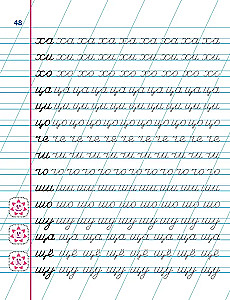 48
ха ха ха ха ха ха ха ха ха
хи хи хи хи хи хи хи хи хи
хо хо хо хо хо хо хо хо хо
ца ца ца ца ца ца ца ца ца
ци ци ци ци ци ци ци ци ци
цо цо цо цо цо цо цо цо цо
че че че че че че че че че
чи чи чи чи чи чи чи чи чи
чо чо чо чо чо чо чо чо чо
ши ши ши ши ши ши ши ши
шо шо шо шо шо шо шо шо
шу шу шу шу шу шу шу шу
ща ща ща ща ща ща ща ща
ще ще ще ще ще ще ще ще
щу щу щу щу щу щу щу щу